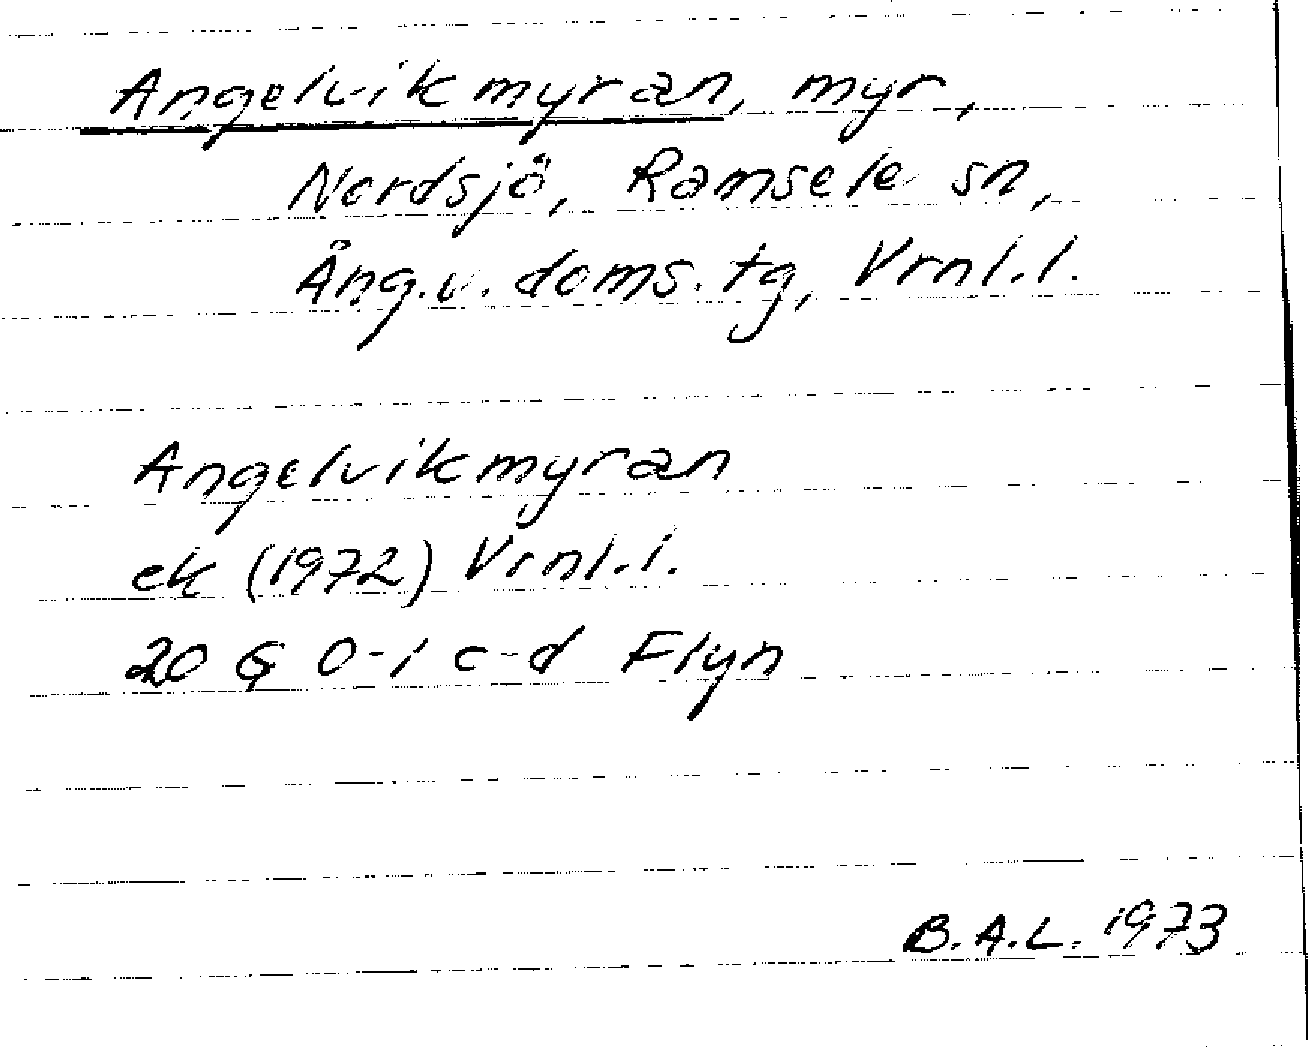 Angelvikmyran, myr,
Nordsjö, Ramsele sn,
Ång.v. doms. tg, Vrnl.l.
Angelvikmyran
ek (1972) Vrnl.l.
20 G 0-1 c-d Flyn
B.A.L. 1973